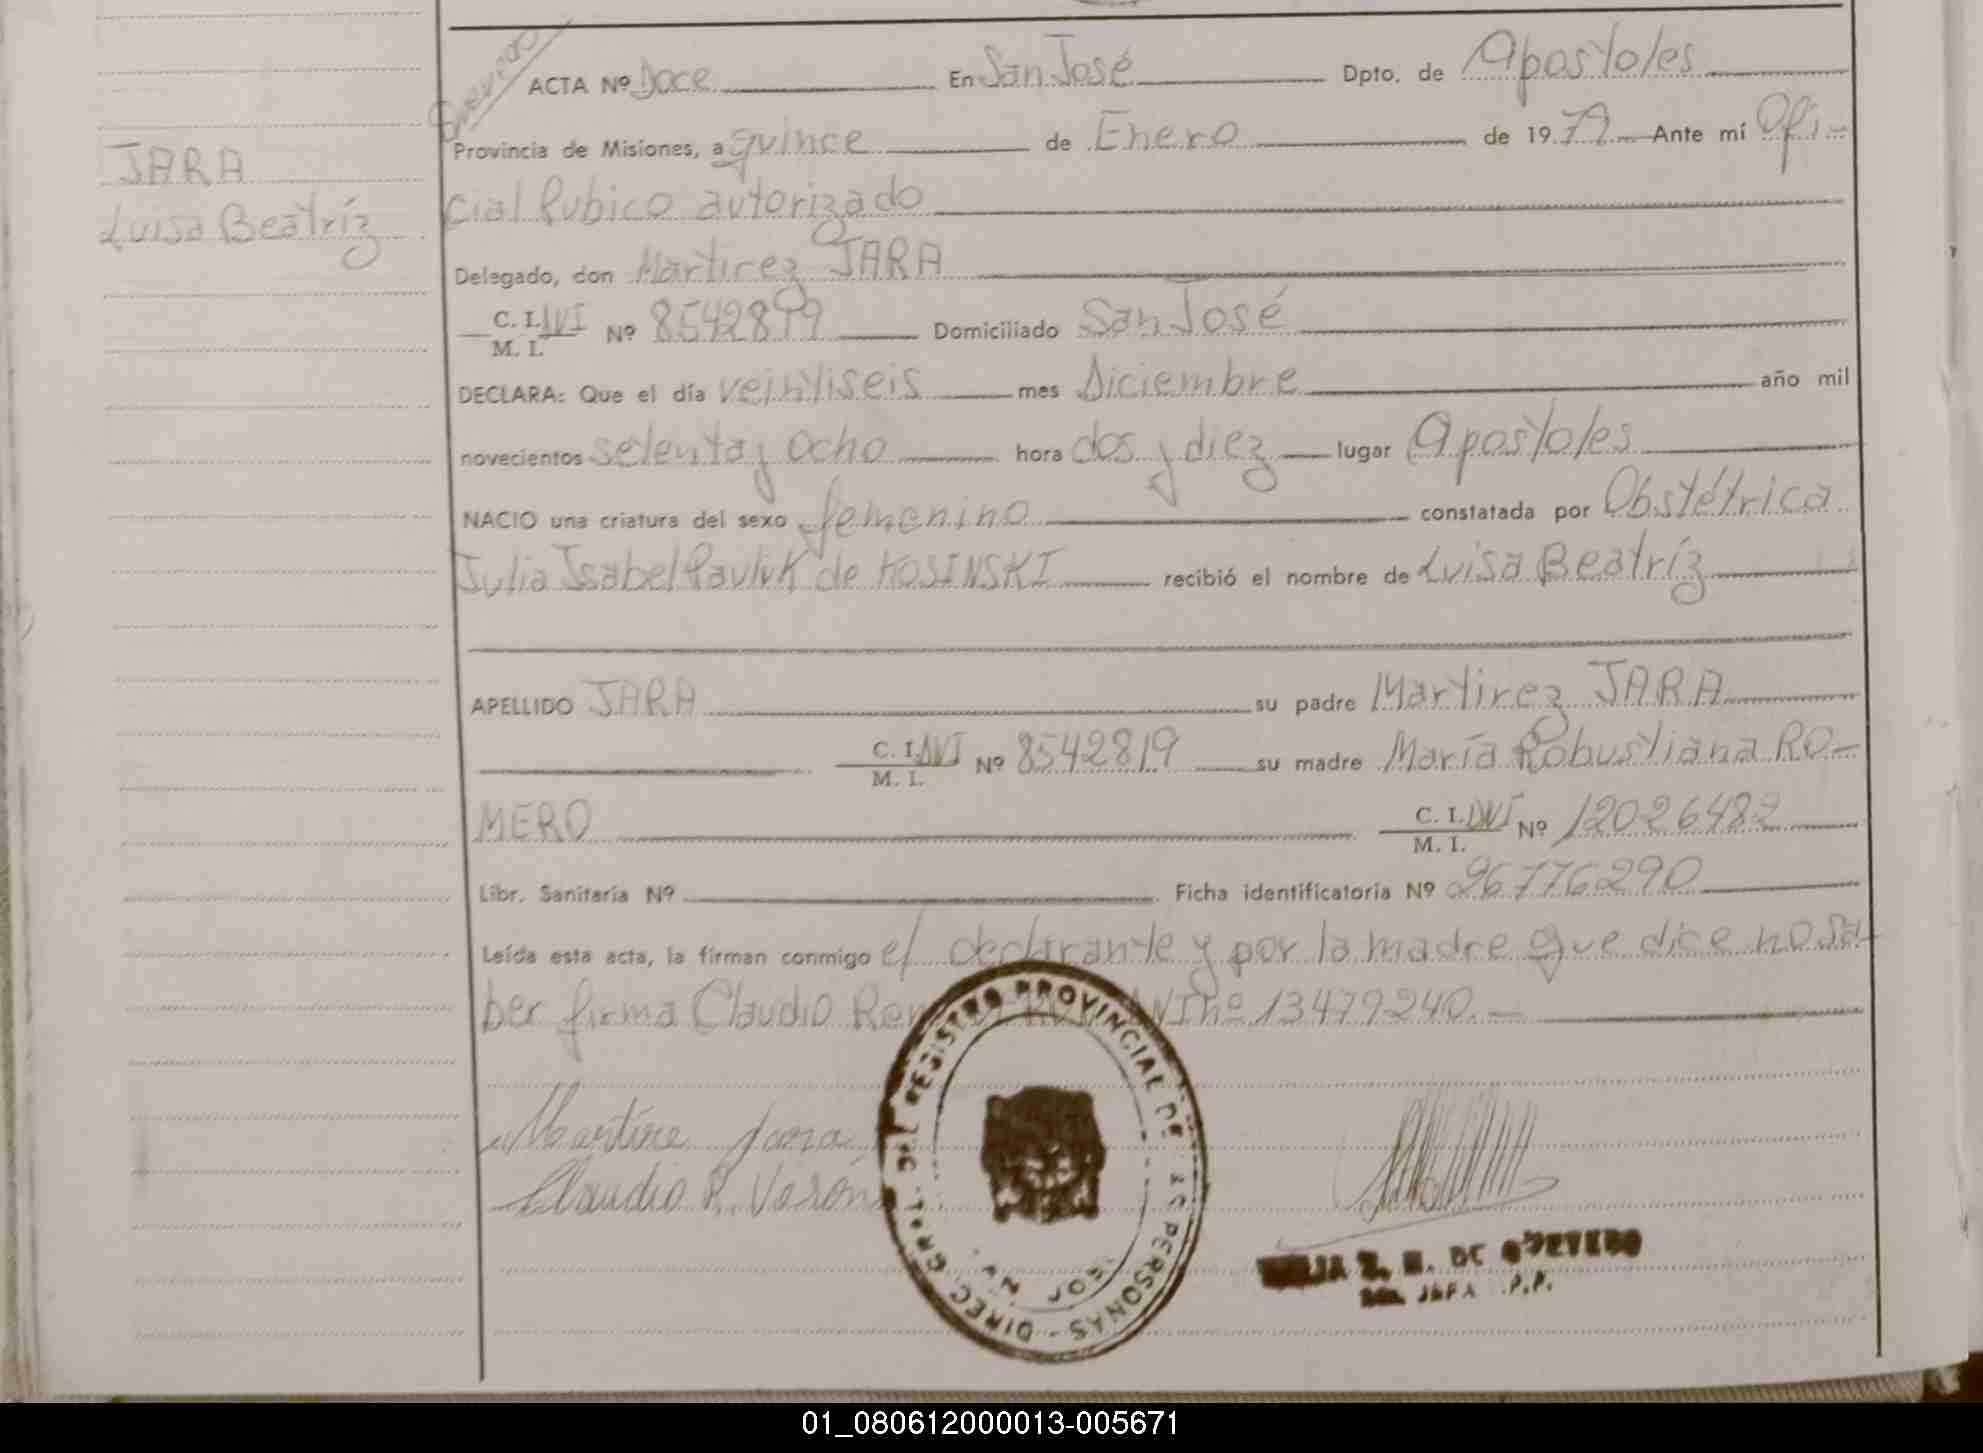 ACTA Nº Doce En San José Dpto. de Apostoles
Provincia de Misiones, a quince de Enero de 1979 Ante mí Ofi-
JARA
Luisa Beatríz
cial Pubico autorizado
Delegado, don Martirez JARA
C. I. DNI M. I. Nº 8542899 Domiciliado San José
DECLARA: Que el día veintiseis mes Diciembre año mil
novecientos setenta y ocho hora dos y diez lugar Apostoles
NACIO una criatura del sexo femenino constatada por Obstétrica
Julia Isabel Pavluk de KOSINSKI recibió el nombre de Luisa Beatríz
APELLIDO JARA su padre Martirez JARA
C. I. DNI M. I. Nº 8542819 su madre María Robustiana RO-
MERO C. I. DNI M. I. Nº 12026482
Libr. Sanitaria Nº Ficha identificatoria Nº 26776290
Leída esta acta, la firman conmigo el declarante y por la madre que dice no sa-
ber firma Claudio DNI nº 13479240.-
Martire Jara
Claudio R. Verón
DIREC. GRAL. DEL REGISTRO PROVINCIAL DE LAS PERSONAS
JOSE
DE QUEVEDO
JEFA P.P.
01_080612000013-005671